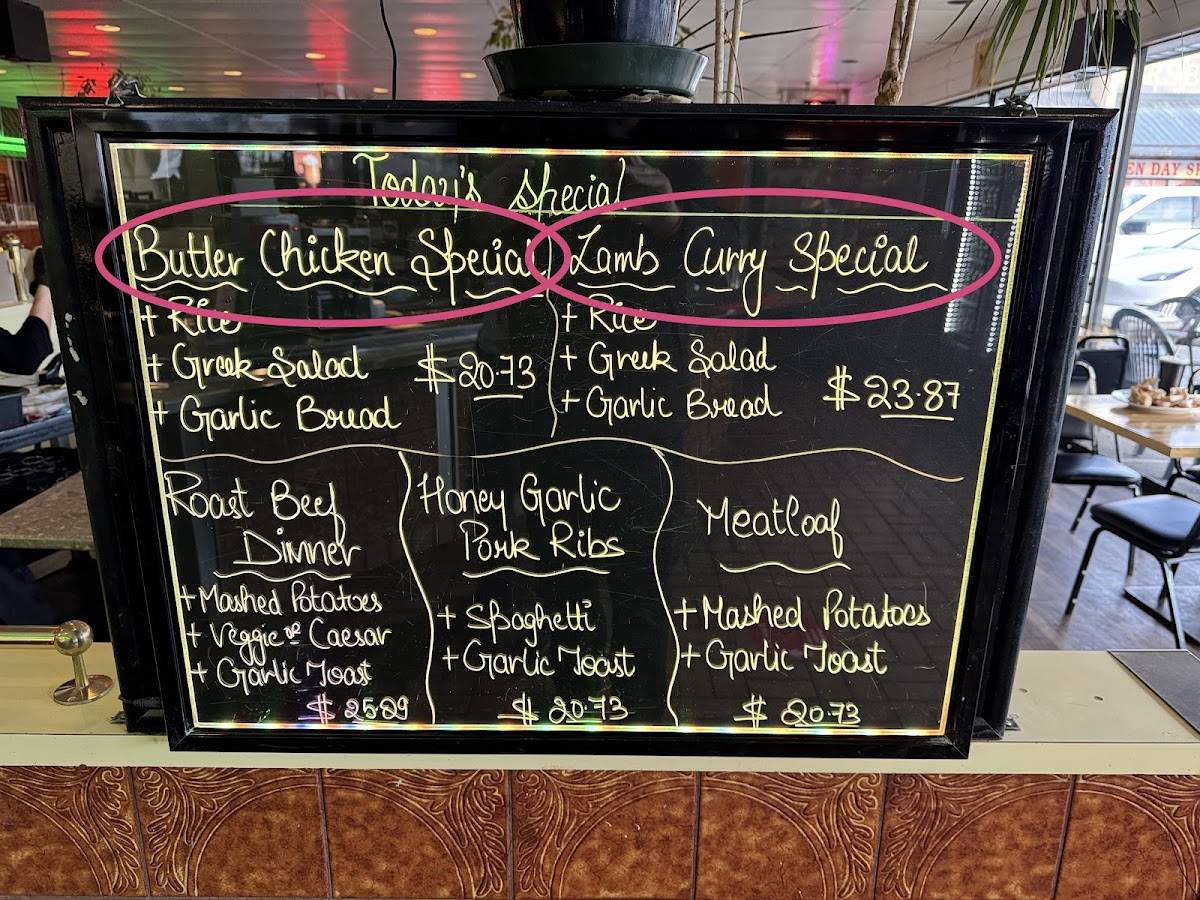 Today's Special
Butter Chicken Special
+ Rice
+ Greek Salad
+ Garlic Bread
$20.73
Lamb Curry Special
+ Rice
+ Greek Salad
+ Garlic Bread
$23.87
Roast Beef
Dinner
+ Mashed Potatoes
+ Veggie or Caesar
+ Garlic Toast
$ 25.29
Honey Garlic
Pork Ribs
+ Spaghetti
+ Garlic Toast
$ 20.73
Meatloaf
+ Mashed Potatoes
+ Garlic Toast
$ 20.73
EN DAY